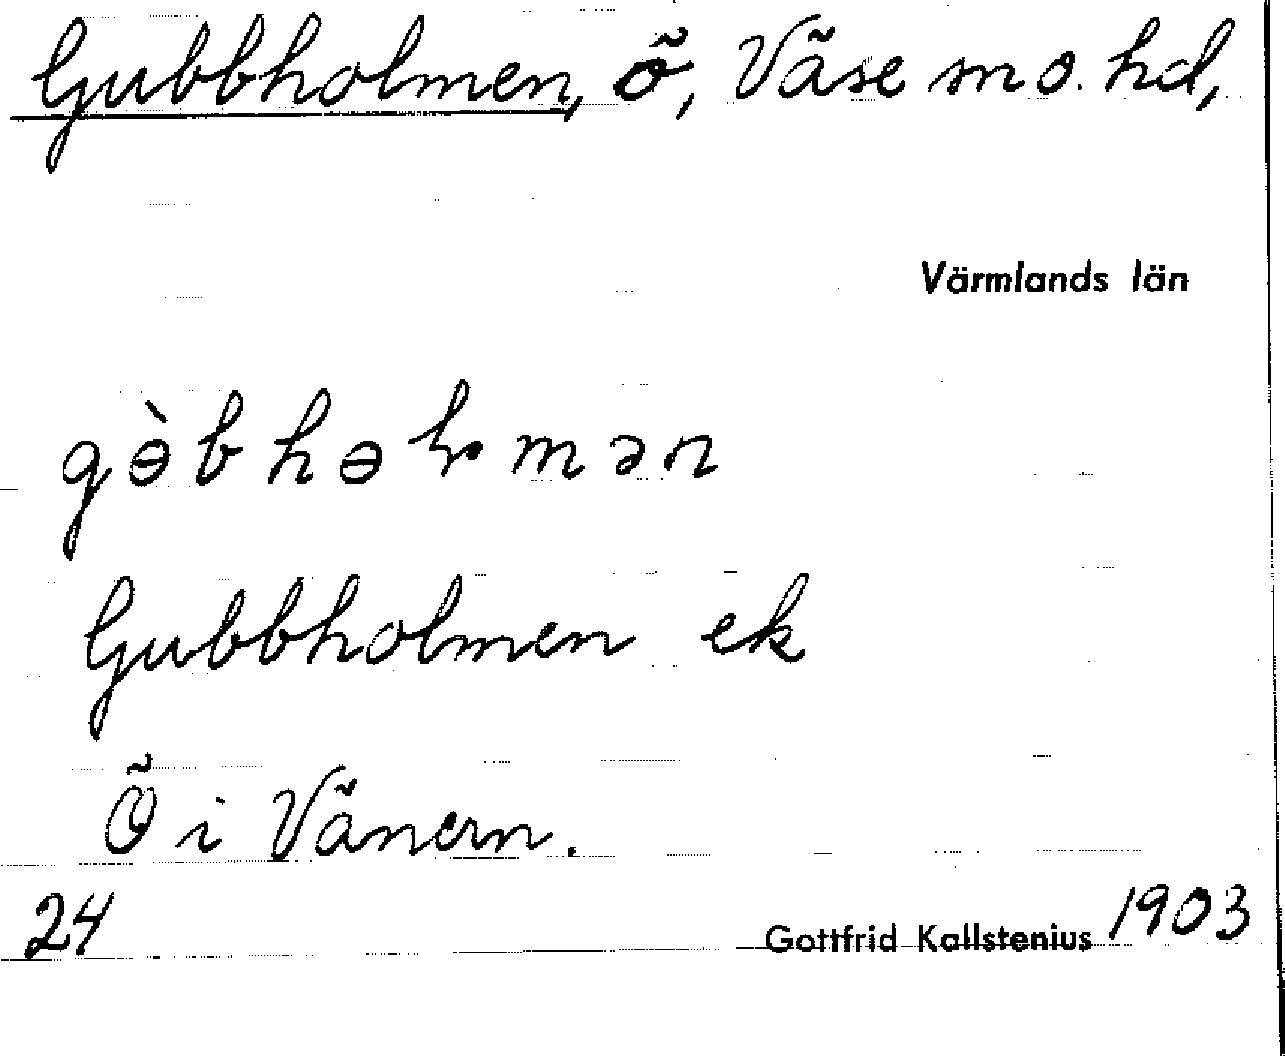 Gubbholmen, ö, Väse sn o. hd,
Värmlands län
gɵ̀bhɵɫmən
Gubbholmen ek
Ö i Vänern.
24 Gottfrid Kallstenius 1903